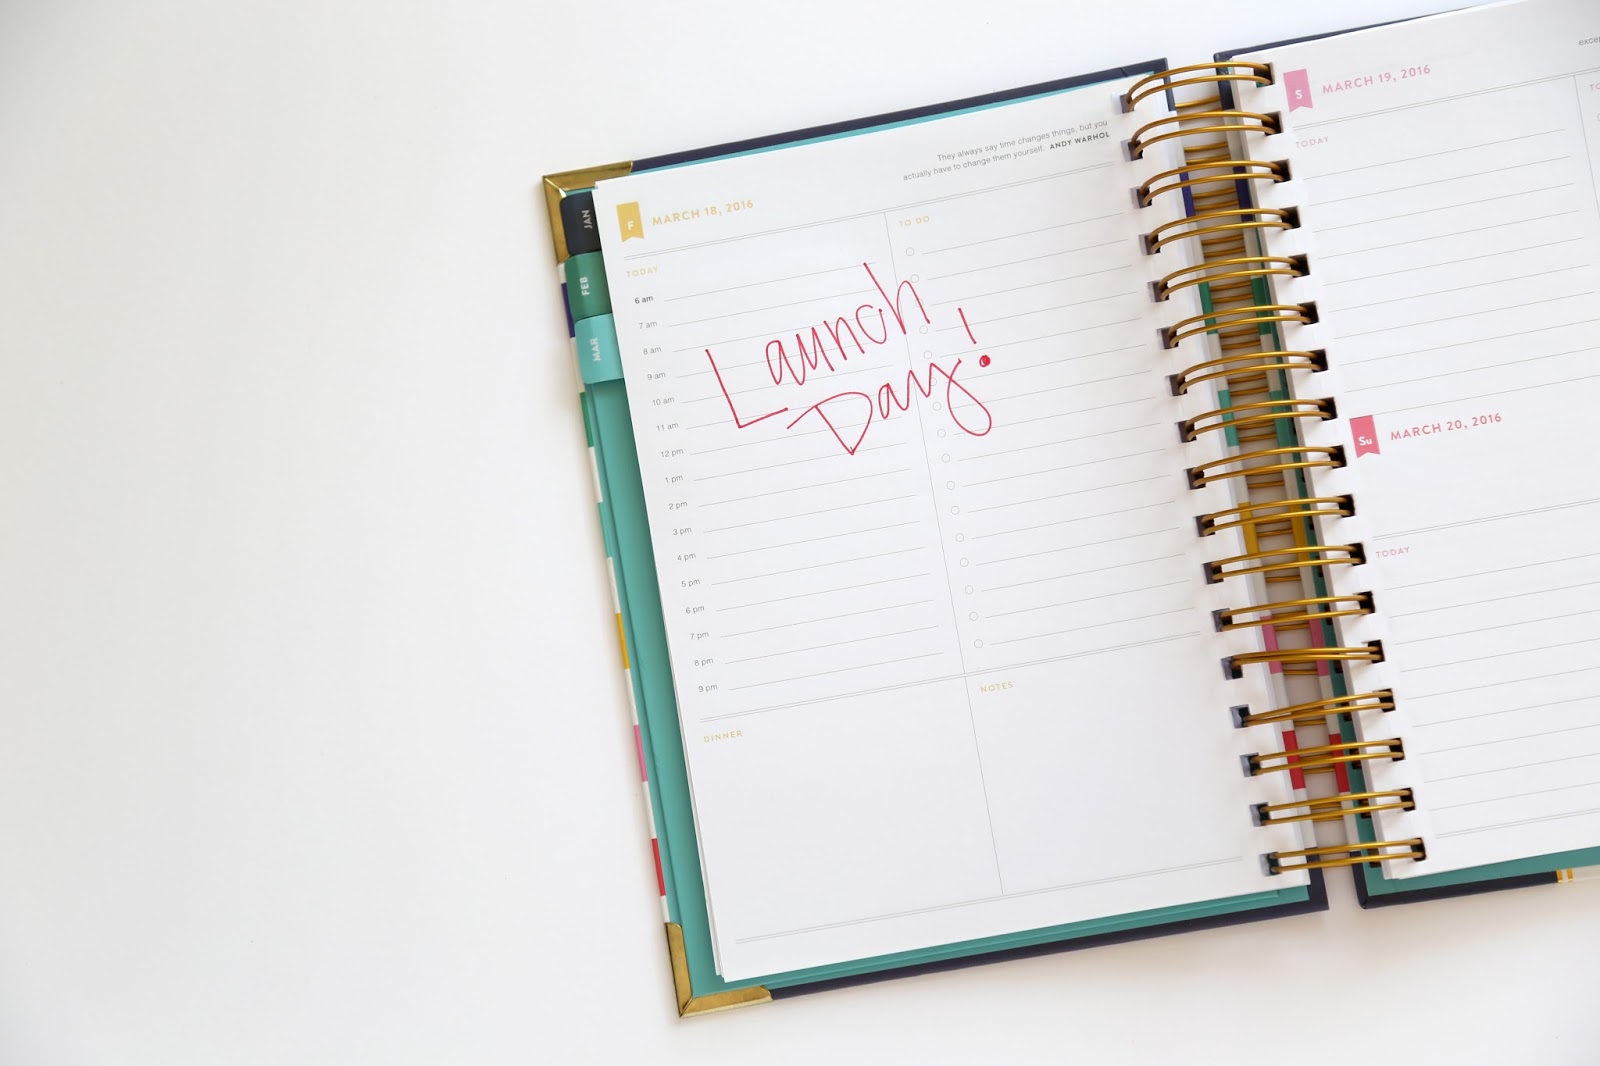 JAN
FEB
MAR
F
MARCH 18, 2016
They always say time changes things, but you
actually have to change them yourself. ANDY WARHOL
TODAY
6 am
7 am
8 am
9 am
10 am
11 am
12 pm
1 pm
2 pm
3 pm
4 pm
5 pm
6 pm
7 pm
8 pm
9 pm
TO DO
Launch
Day!
DINNER
NOTES
S
MARCH 19, 2016
TODAY
Su
MARCH 20, 2016
TODAY